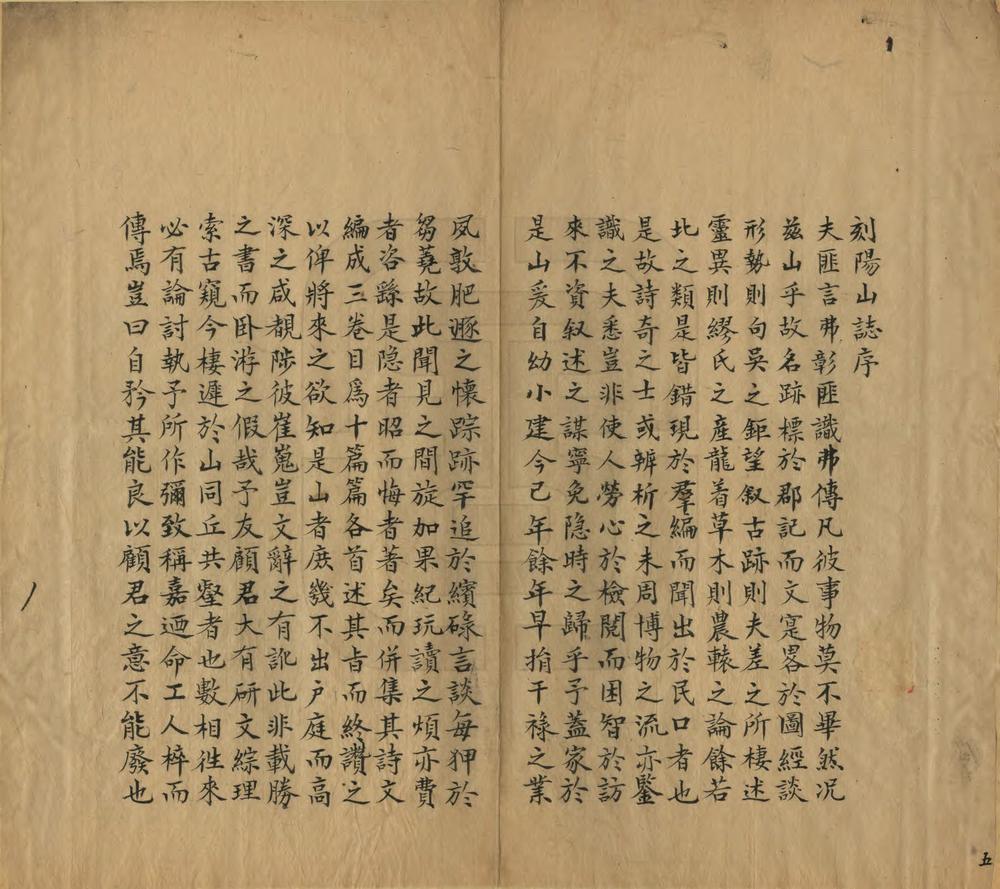 刻陽山誌序
夫匪言弗彰匪識弗傳凡彼事物莫不畢然況
茲山乎故名跡標於郡記而文寔畧於圖經談
形勢則句吳之鉅望叙古跡則夫差之所棲述
靈異則繆氏之產龍着草木則農轅之論餘若
此之類是皆錯現於羣編而聞出於民口者也
是故詩奇之士或辨析之未周博物之流亦鍳
識之夫悉豈非使人勞心於檢閱而困智於訪
來不資叙述之謀寧免隐時之歸乎予蓋家於
是山爰自幼小建今已年餘年早捐干祿之業
夙敦肥遯之懷踪跡罕追於繽碌言談每狎於
芻蕘故此聞見之間旋加果紀玩讀之煩亦費
者咨繇是隐者昭而悔者著矣而併集其詩文
編成三卷目爲十篇篇各首述其㫖而終讚之
以俾將來之欲知是山者庻幾不出户庭而高
深之咸覩陟彼崔嵬豈文辭之有訛此非載勝
之書而卧游之假哉予友顧君大有研文綜理
索古窺今棲遲於山同丘共壑者也數相徃來
必有論討執予所作彌致稱嘉迺命工人梓而
傳焉豈曰自矜其能良以顧君之意不能廢也
五